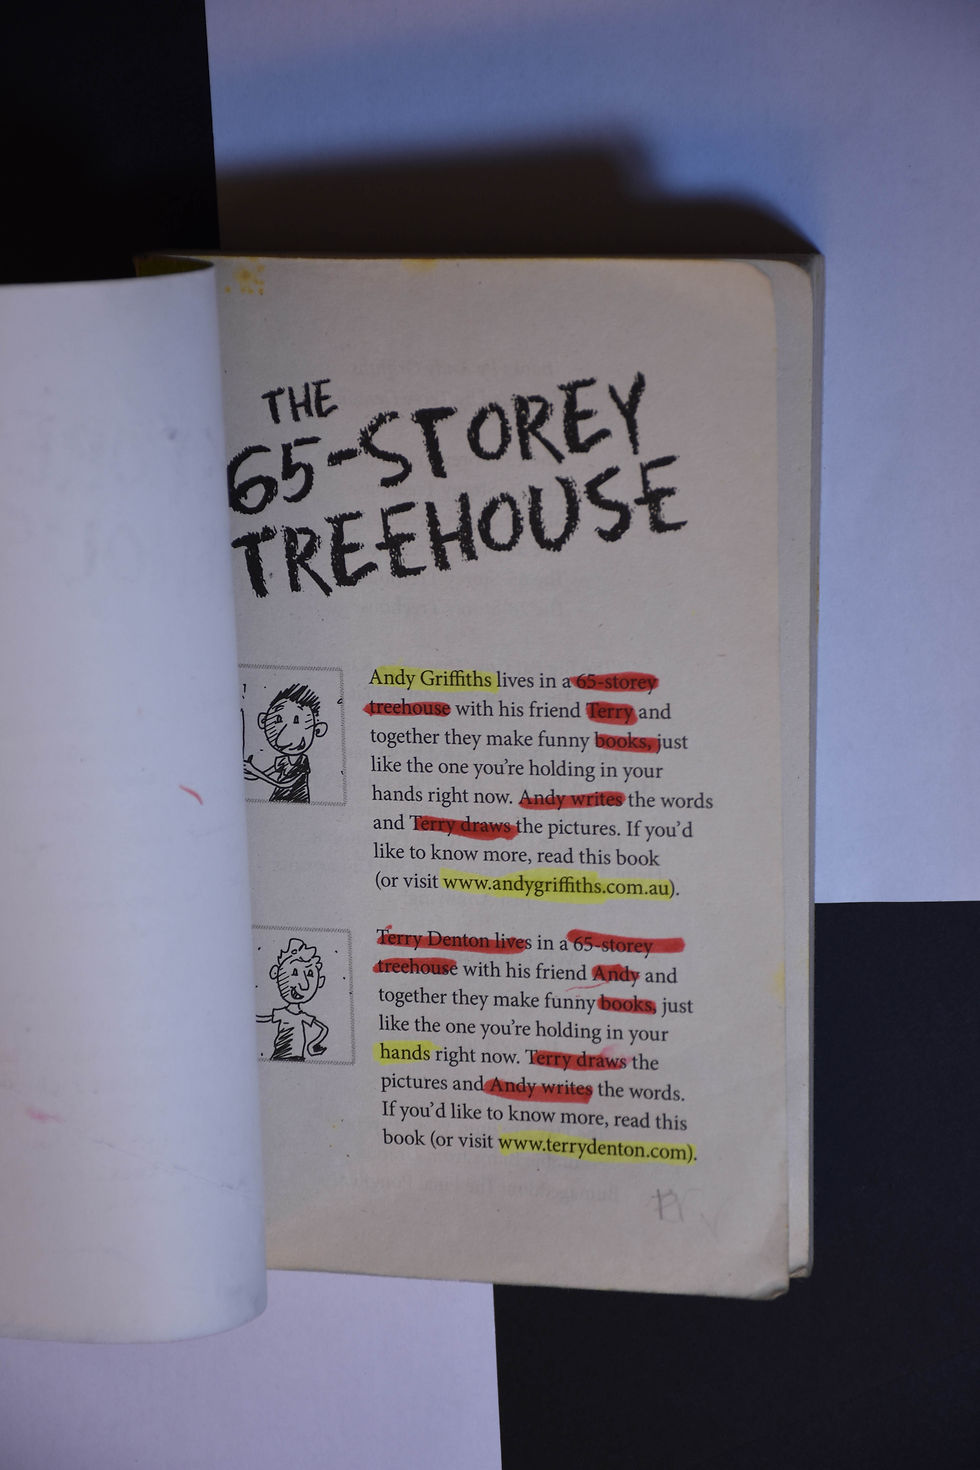 THE
65-STOREY
TREEHOUSE
Andy Griffiths lives in a 65-storey
treehouse with his friend Terry and
together they make funny books, just
like the one you're holding in your
hands right now. Andy writes the words
and Terry draws the pictures. If you'd
like to know more, read this book
(or visit www.andygriffiths.com.au).
Terry Denton lives in a 65-storey
treehouse with his friend Andy and
together they make funny books, just
like the one you're holding in your
hands right now. Terry draws the
pictures and Andy writes the words.
If you'd like to know more, read this
book (or visit www.terrydenton.com).